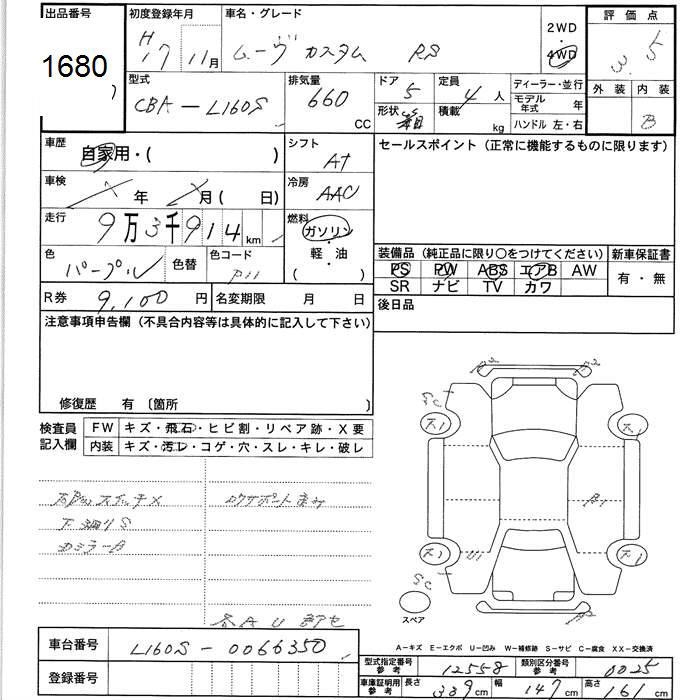 出品番号
1680
初度登録年月
H17 11月
車名・グレード
ムーヴ カスタム RS
2WD
・
4WD
評価点
3.5
外装 内装
B
型式
CBA-L160S
排気量
660 CC
ドア
5
形状
定員
4 人
積載
kg
ディーラー・並行
モデル年式 年
ハンドル 左・右
車歴
自家用・( )
シフト
AT
車検
年 月( 日)
冷房
AAC
走行
9万3千914km
燃料
ガソリン
・
軽・油
( )
色
パープル
色替
色コード
P11
R券 9,100 円
名変期限 月 日
セールスポイント(正常に機能するものに限ります)
装備品(純正品に限り○をつけてください)
PS PW ABS エアB AW
SR ナビ TV カワ
新車保証書
有・無
後日品
注意事項申告欄(不具合内容等は具体的に記入して下さい)
修復歴 有〔箇所 〕
検査員記入欄
FW キズ・飛石・ヒビ割・リペア跡・X要
内装 キズ・汚レ・コゲ・穴・スレ・キレ・破レ
スイッチX
下廻りS
スペア
A-キズ E-エクボ U-凹み W-補修跡 S-サビ C-腐食 XX-交換済
車台番号 L160S-0066350
登録番号
型式指定番号 参考 12558
類別区分番号 参考 0025
車庫証明用 参考 長さ 339cm 幅 147cm 高さ 161cm